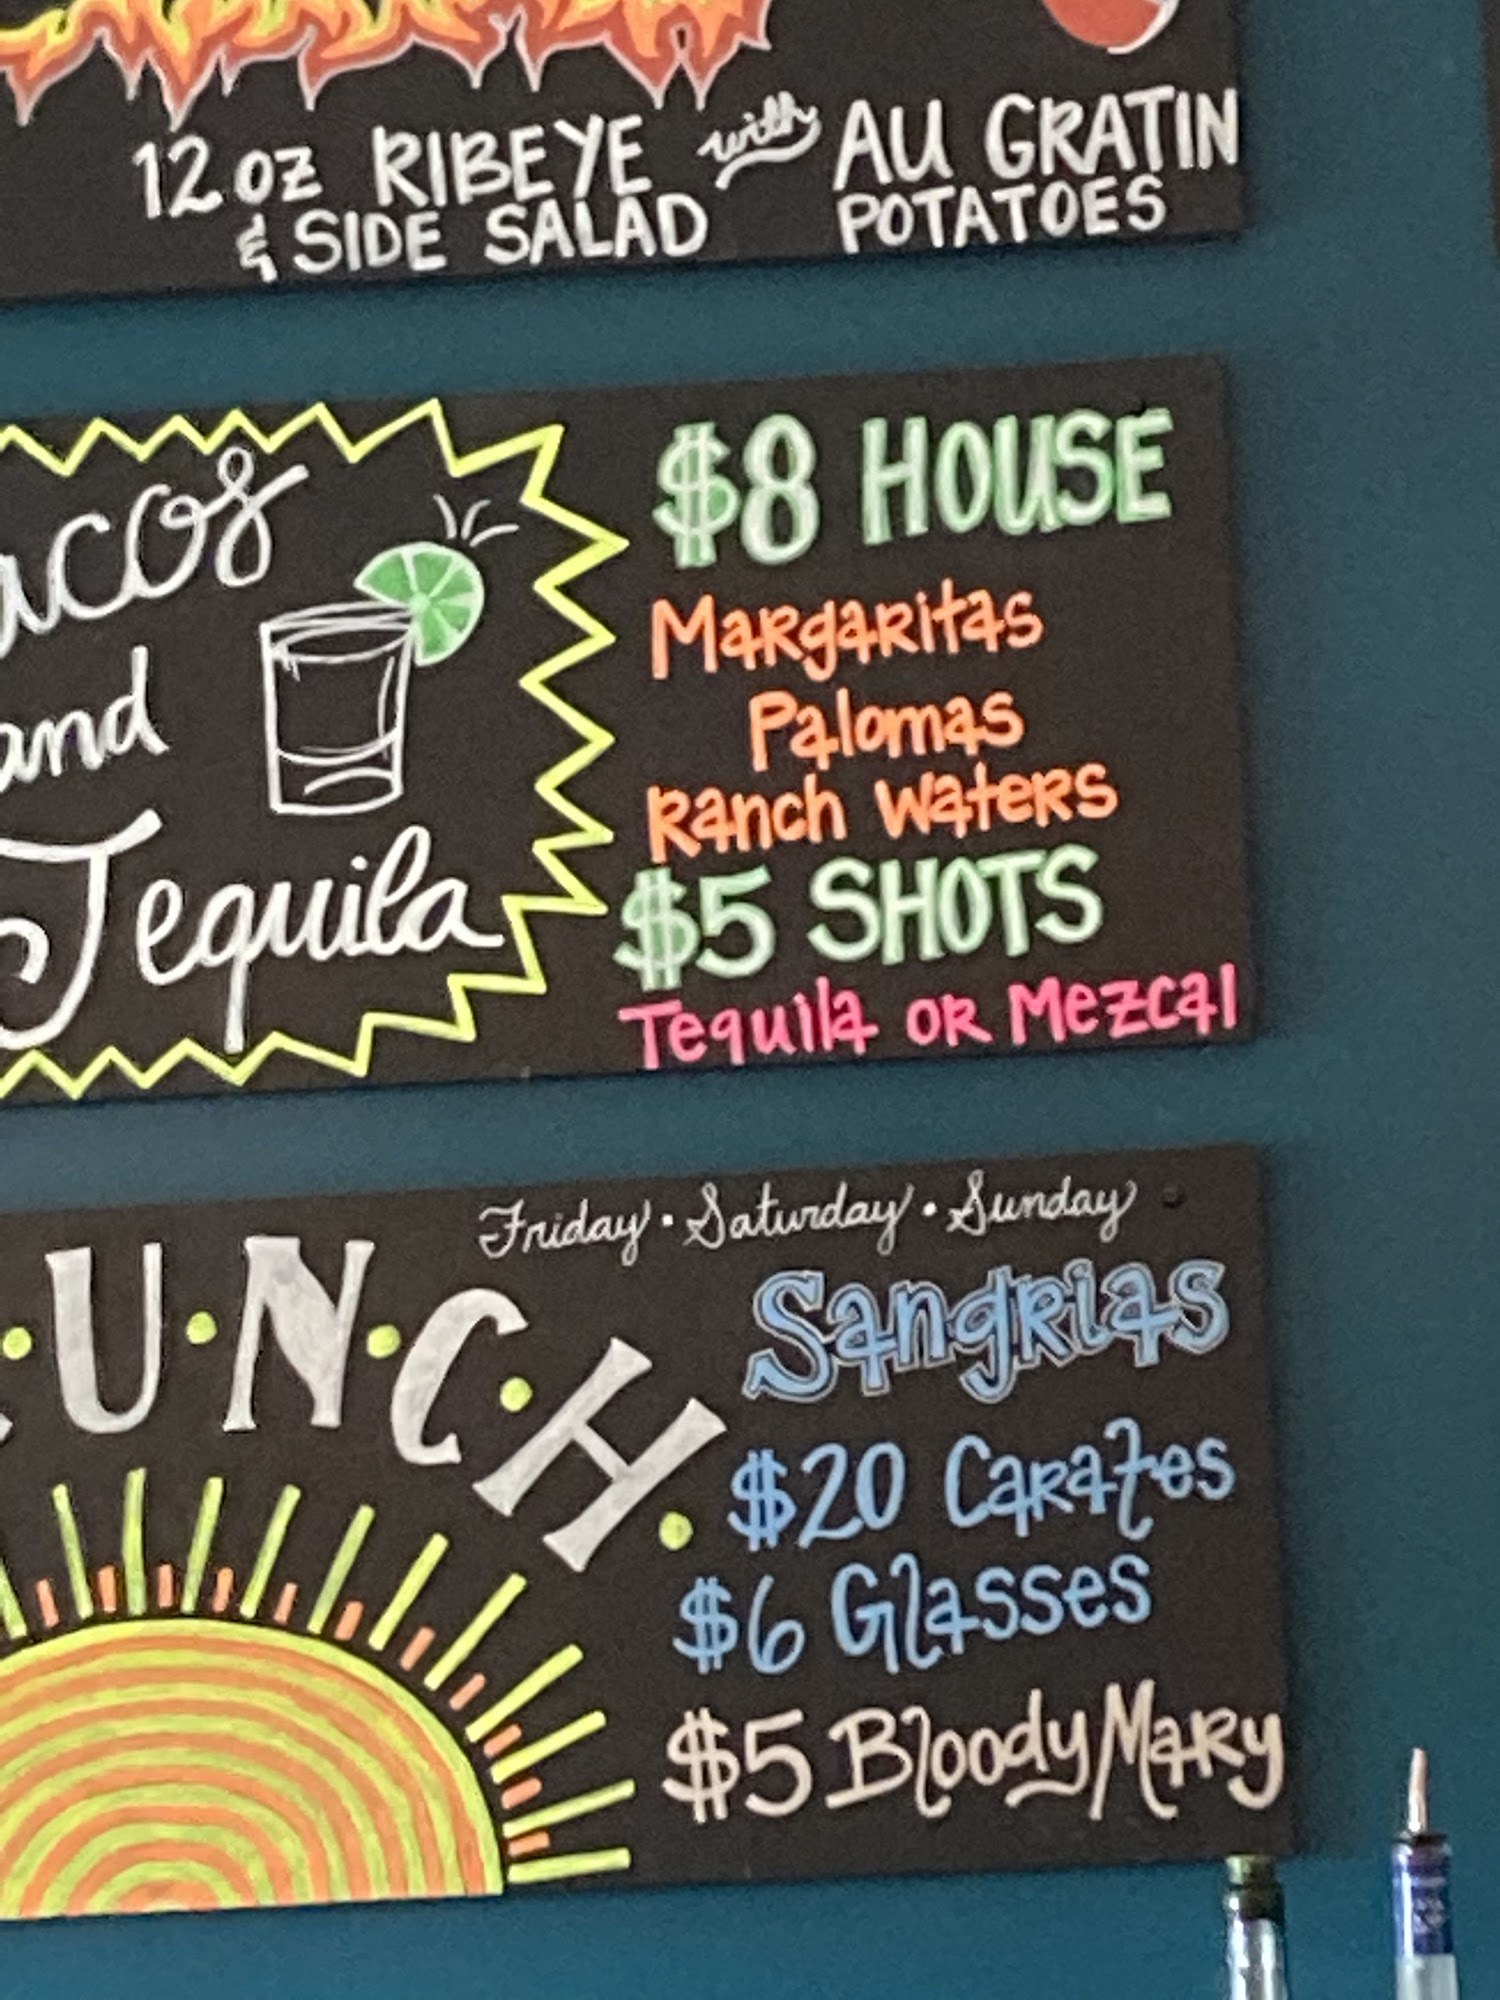 12 oz RIBEYE with AU GRATIN
& SIDE SALAD POTATOES
and
Tequila
$8 HOUSE
Margaritas
Palomas
Ranch Waters
$5 SHOTS
Tequila or Mezcal
Friday · Saturday · Sunday
U·N·C·H·
Sangrias
$20 Carafes
$6 Glasses
$5 Bloody Mary